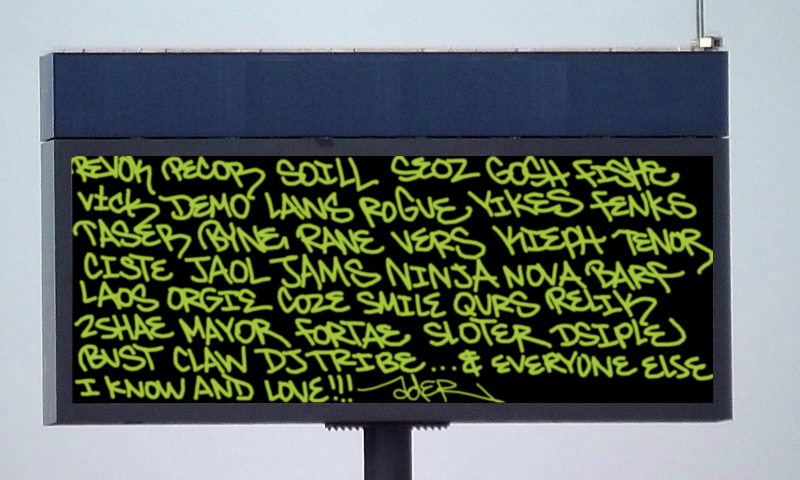 REVOK PECOR SOILL SEOZ GOSH FISHE
VICK DEMO LAWS ROGUE YIKES FENKS
TASER BYNE RANE VERS KIEPH TENOR
CISTE JAOL JAMS NINJA NOVA BARF
LAOS ORGIE COZE SMILE QURS RELIK
2SHAE MAYOR FORTAE SLOTER DSIPLE
BUST CLAW DJTRIBE...& EVERYONE ELSE
I KNOW AND LOVE!!! JdER